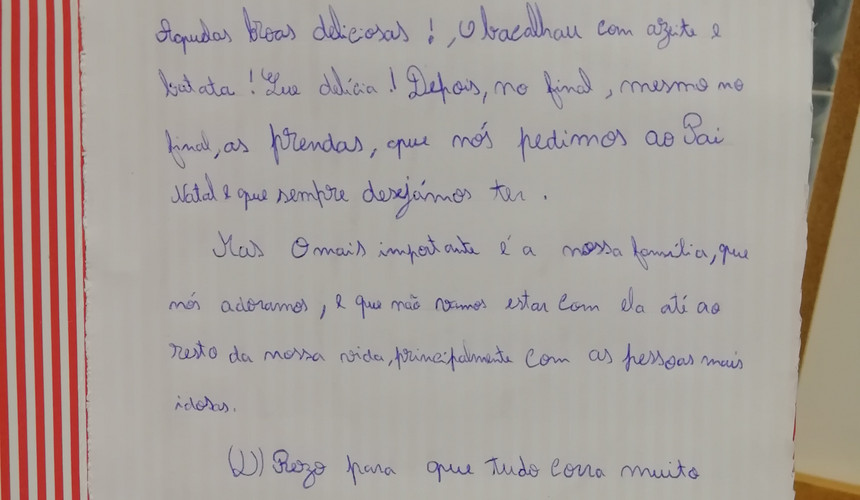 Aquelas broas deliciosas!, O bacalhau com azeite e
batata! Que delícia! Depois, no final, mesmo no
final, as prendas, que nós pedimos ao Pai
Natal e que sempre desejámos ter.
Mas O mais importante é a nossa família, que
nós adoramos, e que não vamos estar com ela até ao
resto da nossa vida, principalmente com as pessoas mais
idosas.
Rezo para que tudo corra muito